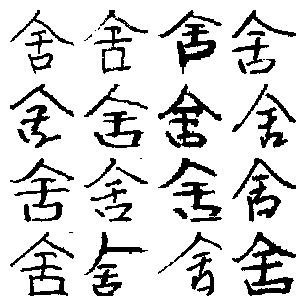 舍舍舍舍
舍舍舍舍
舍舍舍舍
舍舍舍舍